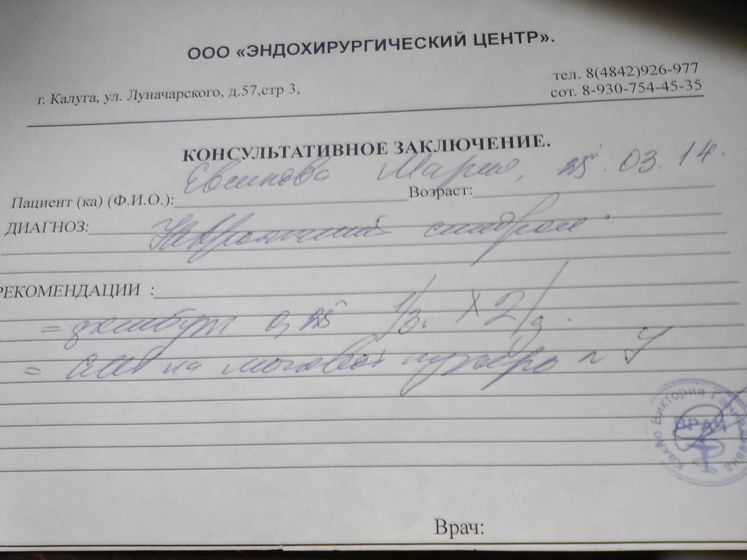 ООО «ЭНДОХИРУРГИЧЕСКИЙ ЦЕНТР».
г. Калуга, ул. Луначарского, д.57,стр 3,
тел. 8(4842)926-977
сот. 8-930-754-45-35
КОНСУЛЬТАТИВНОЕ ЗАКЛЮЧЕНИЕ.
Пациент (ка) (Ф.И.О.): Мария, 25.03.14. Возраст:
ДИАГНОЗ: синдром.
РЕКОМЕНДАЦИИ :
= 0,25 1/3 x 2/д.
= на мочевой
ВРАЧ
Виктория
Врач: